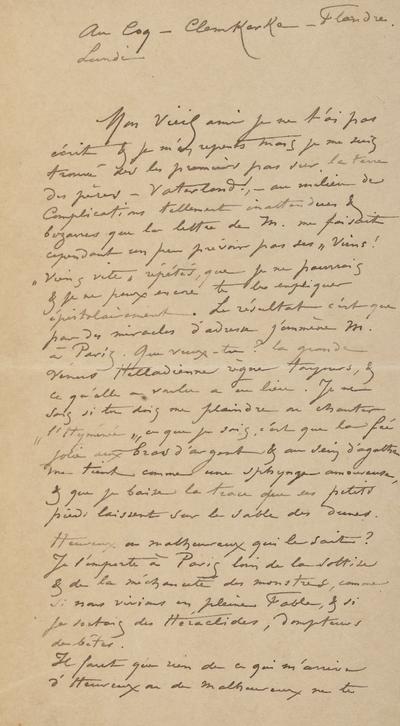 Au Coq – Clemskerke – Flandre.
Lundi
Mon Vieil ami je ne t'ai pas
écrit & je m'en repents mais je me suis
trouvé dès les premiers pas sur la terre
des pères – Vaterland! – au milieu de
Complications tellement inattendues &
bizarres que la lettre de M. me faisait
cependant un peu prévoir par ses „Viens!
„Viens vite" répétés, que je ne pourrais
& je ne peux encore te les expliquer
épistolairement. Le résultat c'est que
par des miracles d'adresse j'emmène M.
à Paris. Que veux-tu? la grande
Vénus Helladienne règne toujours, &
ce qu'elle a voulu a eu lieu. Je ne
sais si tu dois me plaindre ou chanter
„l'Hyménée", ce que je sais, c'est que la fée
jolie aux bras d'argent & au sein d'agathe
me tient comme une sphynge amoureuse,
& que je baise la trace que ses petits
pieds laissent sur le sable des dunes.
Heureux ou malheureux qui le sait?
Je l'emporte à Paris loin de la sottise
& de la méchanceté des monstres, comme
si nous vivions en pleine Fable, & si
je sortais des Héraclides, dompteurs
de bêtes.
Il faut que rien de ce qui m'arrive
d'Heureux ou de malheureux ne te